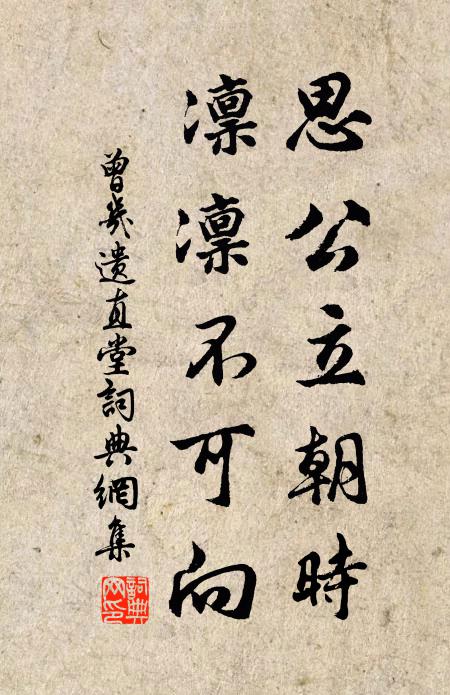 思公立朝時
凜凜不可向
曾幾遺直堂詞典網集
詞典
网印